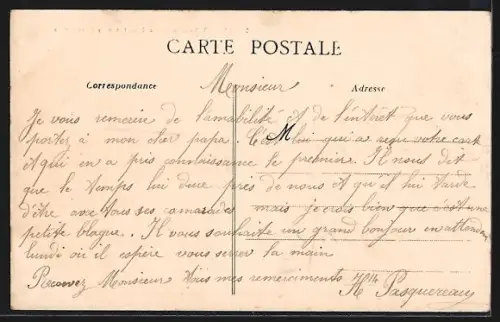 CARTE POSTALE
Correspondance
Adresse
Monsieur
Je vous remercie de l'amabilité et de l'intérêt que vous
portez à mon cher papa. C'est lui qui a reçu votre carte
et qui en a pris connaissance le premier. Il nous dit
que le temps lui dure près de nous et qu'il lui tarde
d'être avec tous ses camarades mais je crois bien que c'est une
petite blague. Il vous souhaite un grand bonjour en attendant
lundi où il espère vous serrer la main
Recevez Monsieur tous mes remerciments Pasquereau
M